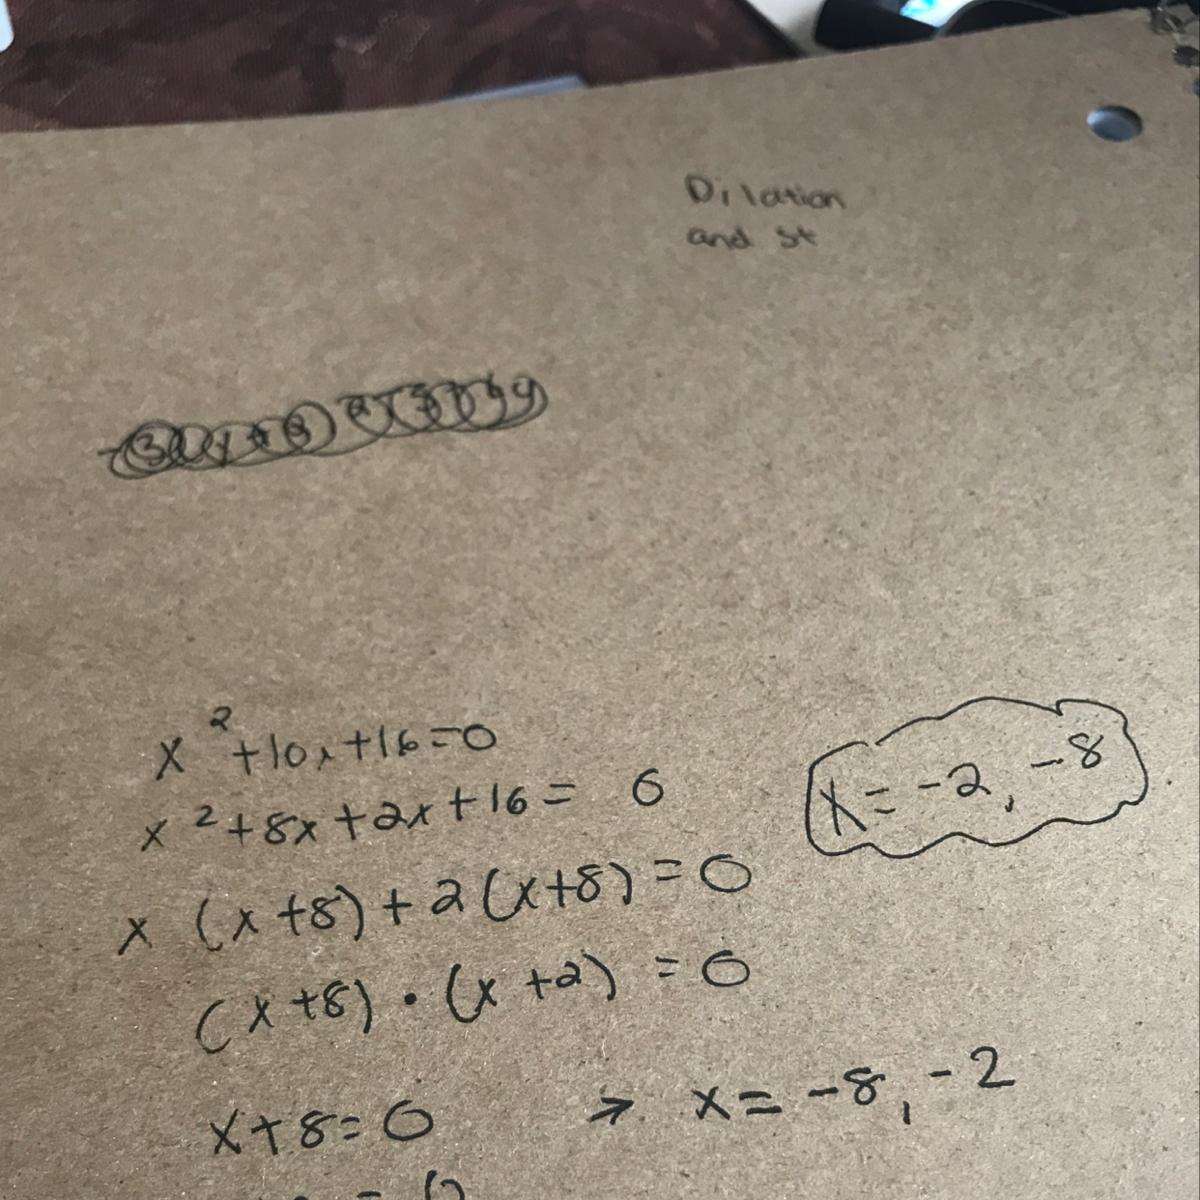 Dilation
and st
x²+10x+16=0
x²+8x+2x+16= 0
x=-2, -8
x (x+8)+2(x+8)=0
(x+8)·(x+2)=0
x+8=0 → x= -8, -2
= 0